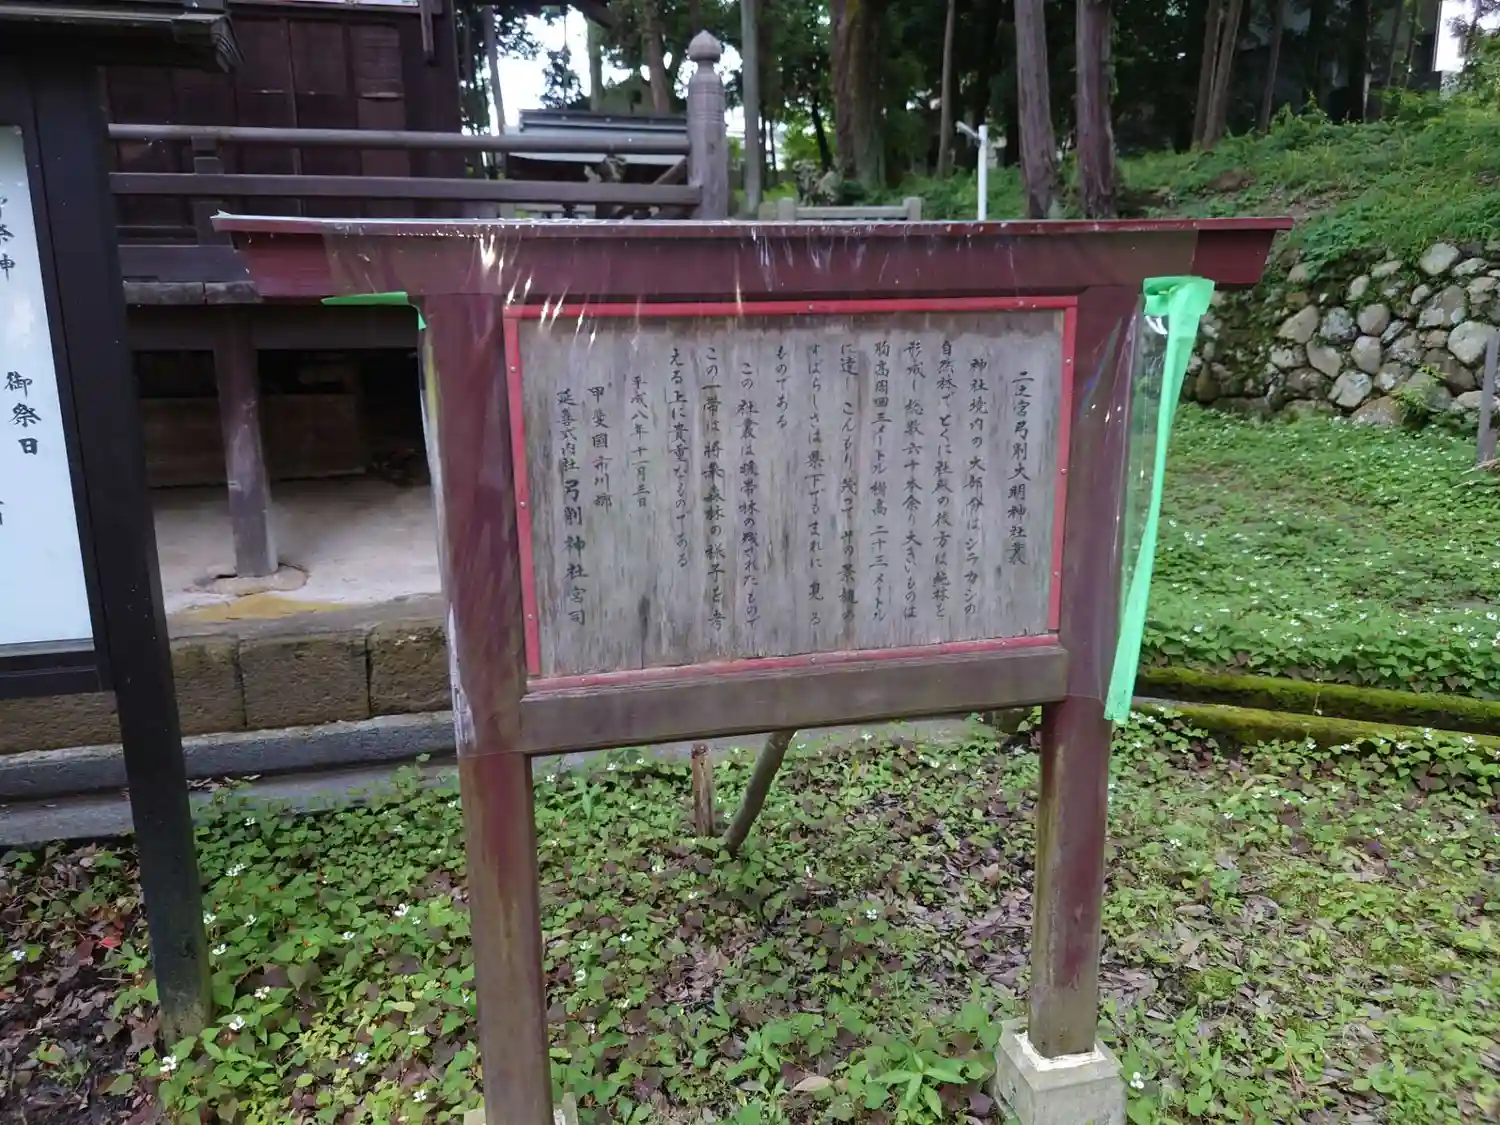 二之宮弓削大明神社叢
神社境内の大部分はシラカシの
自然林でとくに社殿の後方は純林を
形成し総数六十本余り大きいものは
胸高周囲三メートル樹高二十三メートル
に達しこんもり茂ってその景観の
すばらしさは県下でもまれに見る
ものである
この社叢は
の残されたもので
この一帯は将来森林の様子を考
える上に貴重なものである
平成八年十一月三日
甲斐國市川郷
延喜式内社弓削神社宮司
御祭神
御祭日